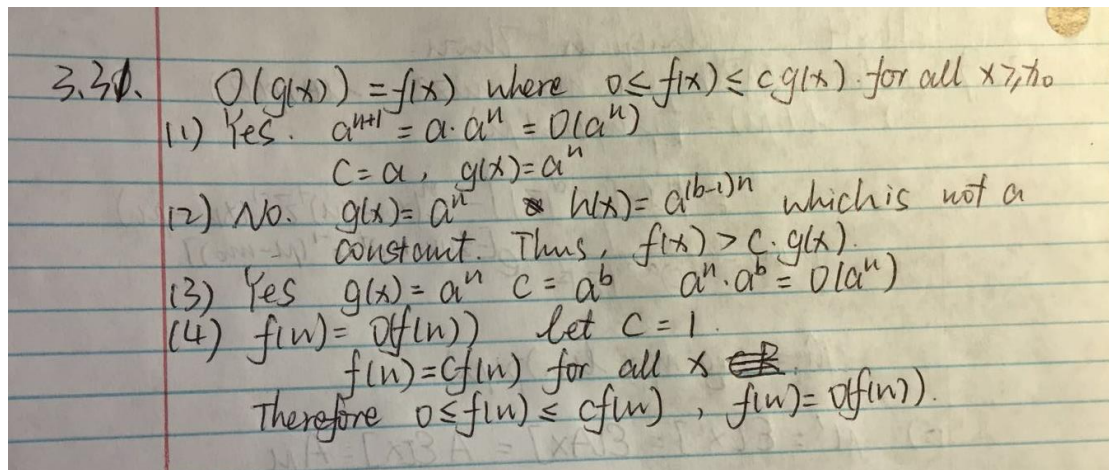 3.31. O(g(x)) = f(x) where 0 ≤ f(x) ≤ cg(x) for all x ≥ x₀
(1) Yes. aⁿ⁺¹ = a · aⁿ = O(aⁿ)
C = a, g(x) = aⁿ
(2) No. g(x) = aⁿ h(x) = a⁽ᵇ⁻¹⁾ⁿ which is not a
constant. Thus, f(x) > C · g(x).
(3) Yes g(x) = aⁿ C = aᵇ aⁿ · aᵇ = O(aⁿ)
(4) f(n) = O(f(n)) let C = 1.
f(n) = Cf(n) for all x
Therefore 0 ≤ f(n) ≤ cf(n), f(n) = O(f(n)).